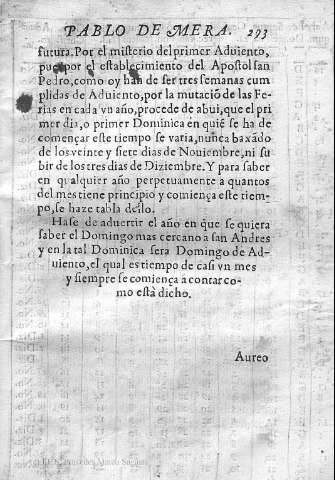 PABLO DE MERA. 293
futura. Por el misterio del primer Aduiento,
pues por el establecimiento del Apostol san
Pedro, como oy han de ser tres semanas cum
plidas de Aduiento, por la mutaciõ de las Fe
rias en cada vn año, procede de a̧ui, que el pri
mer dia, o primer Dominica en quiẽ se ha de
començar este tiempo se varia, nunca baxãdo
de los veinte y siete dias de Nouiembre, ni su
bir de los tres dias de Diziembre. Y para saber
en qualquier año perpetuamente a quantos
del mes tiene principio y comiença este tiem-
po, se haze tabla dello.
Hase de aduertir el año en que se quiera
saber el Domingo mas cercano a san Andres
y en la tal Dominica sera Domingo de Ad-
uiento, el qual es tiempo de casi vn mes
y siempre se comiença a contar co-
mo está dicho.
Aureo